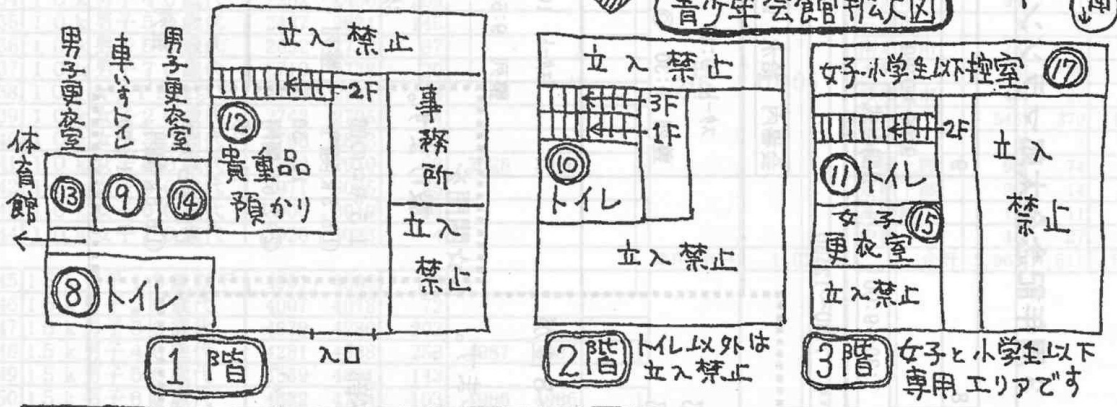 青少年会館拡大図
男子更衣室
車いすトイレ
男子更衣室
立入禁止
2F
⑫
貴重品
預かり
事務所
立入
禁止
体育館
⑬
⑨
⑭
⑧トイレ
入口
1階
立入禁止
3F
1F
⑩
トイレ
立入禁止
2階
トイレ以外は
立入禁止
女子・小学生以下控室 ⑰
2F
⑪トイレ
立入
禁止
女子
更衣室
⑮
立入禁止
3階
女子と小学生以下
専用エリアです